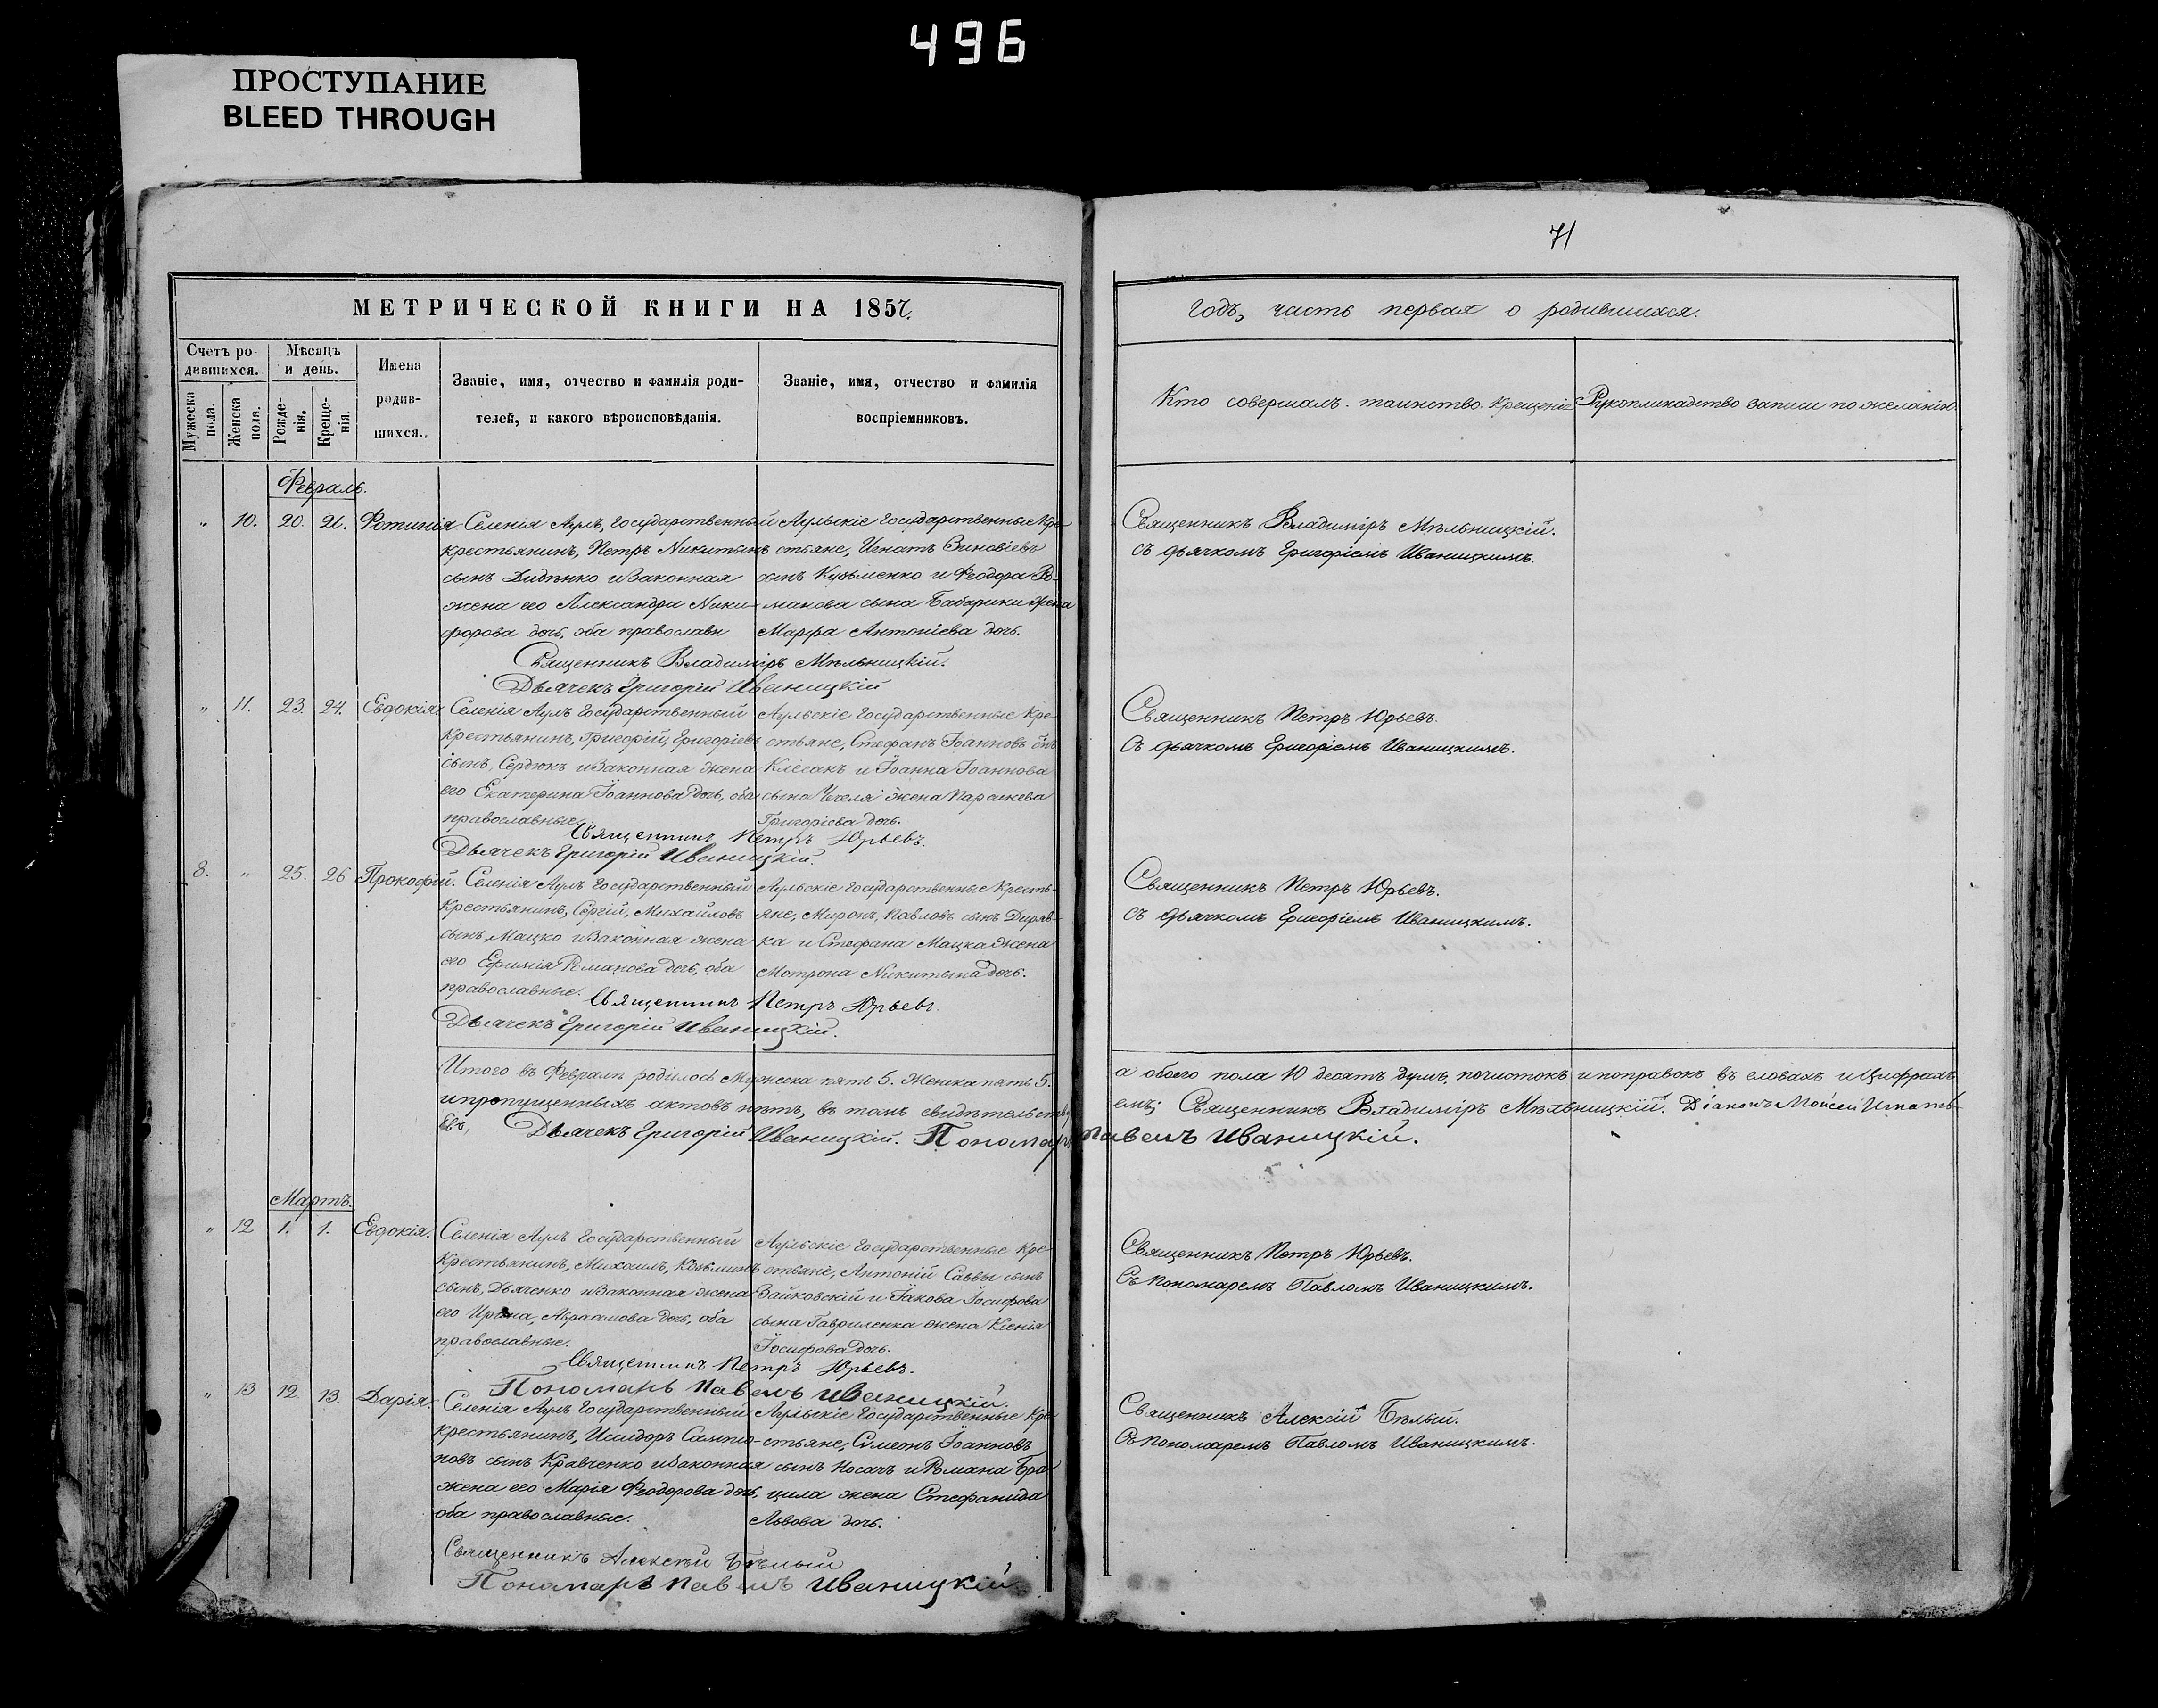 496
ПРОСТУПАНИЕ
BLEED THROUGH
71
МЕТРИЧЕСКОЙ КНИГИ НА 1857.
годъ, часть первая о родившихся.
Счетъ ро-
дившихся.
Мѣсяцъ
и день.
Имена
родив-
шихся.
Мужеска
пола.
Женска
пола.
Рожде-
нія.
Креще-
нія.
Званіе, имя, отчество и фамилія роди-
телей, и какого вѣроисповѣданія.
Званіе, имя, отчество и фамилія
воспріемниковъ.
Кто совершалъ таинство Крещенія
Рукоприкладство записи по желанію.
Февраль.
" 10. 20. 21. Фотинія
Селенія Аулъ, Государственный
крестьянинъ, Петръ Никитинъ
сынъ Диденко и Законная
жена его Александра Ники-
форова дочь, оба православн
Аульскіе Государственные Кре-
стьяне, Игнатъ Зиновіевъ
сынъ Кузьменко и Феодора Ро-
манова сына Бабарики жена
Марфа Антоніева дочь.
Священникъ Владиміръ Мѣльницкій.
Дьячекъ Григорій Иваницкій
Священникъ Владиміръ Мѣльницкій.
съ дьячкомъ Григоріемъ Иваницкимъ.
" 11. 23. 24. Евдокія
Селенія Аулъ Государственный
Крестьянинъ, Григорій, Григоріевъ
сынъ, Сердюкъ и Законная жена
его Екатерина Іоаннова дочь, оба
православные.
Аульскіе Государственные Кре-
стьяне, Стефанъ Іоанновъ снъ
и Іоанна Іоаннова
сына жена Параскева
Григоріева дочь.
Священникъ Петръ Юрьевъ.
Дьячекъ Григорій Иваницкій.
Священникъ Петръ Юрьевъ.
съ дьячкомъ Григоріемъ Иваницкимъ.
8. " 25. 26 Прокофій.
Селенія Аулъ Государственный
Крестьянинъ, Сергій, Михайловъ
сынъ, Мацко и Законная жена
его Ефимія Романова дочь, оба
православные.
Аульскіе Государственные Кресть-
яне, Миронъ, Павловъ сынъ Диряв-
ка и Стефана Мацка жена
Мотрона Никитина дочь.
Священникъ Петръ Юрьевъ.
Дьячекъ Григорій Иваницкій.
Священникъ Петръ Юрьевъ.
съ дьячкомъ Григоріемъ Иваницкимъ.
Итого въ Февралѣ родилось Мужеска пять 5. Женска пять 5.
а обоего пола 10 десять душъ, почистокъ и поправокъ въ словахъ и Цифрахъ
и пропущенныхъ актовъ нѣтъ, въ томъ свидѣтельству-
емъ; Священникъ Владиміръ Мѣльницкій. Діаконъ Моисей Игнать-
евъ, Дьячекъ Григорій Иваницкій. Пономарь Павелъ Иваницкій.
Мартъ.
" 12 1. 1. Евдокія.
Селенія Аулъ Государственный
Крестьянинъ, Михаилъ, Козьминъ
сынъ, Дьяченко и Законная жена
его Ирина, Абраамова дочь, оба
православные.
Аульскіе Государственные Кре-
стьяне, Антоній Саввы сынъ
Зайковскій и Іакова Іосифова
сына Гавриленка жена Ксенія
Іосифова дочь.
Священникъ Петръ Юрьевъ.
Пономарь Павелъ Иваницкій.
Священникъ Петръ Юрьевъ.
Съ пономаремъ Павломъ Иваницкимъ.
" 13 12. 13. Дарія.
Селенія Аулъ Государственный
крестьянинъ, Исидоръ Сампсо-
новъ сынъ Кравченко и Законная
жена его Марія Феодорова дочь,
оба православные.
Аульскіе Государственные Кре-
стьяне, Симеонъ Іоанновъ
сынъ Носачъ и Романа Бра-
цила жена Стефанида
Львова дочь.
Священникъ Алексѣй Бѣлый
Пономарь Павелъ Иваницкій.
Священникъ Алексій Бѣлый.
Съ пономаремъ Павломъ Иваницкимъ.